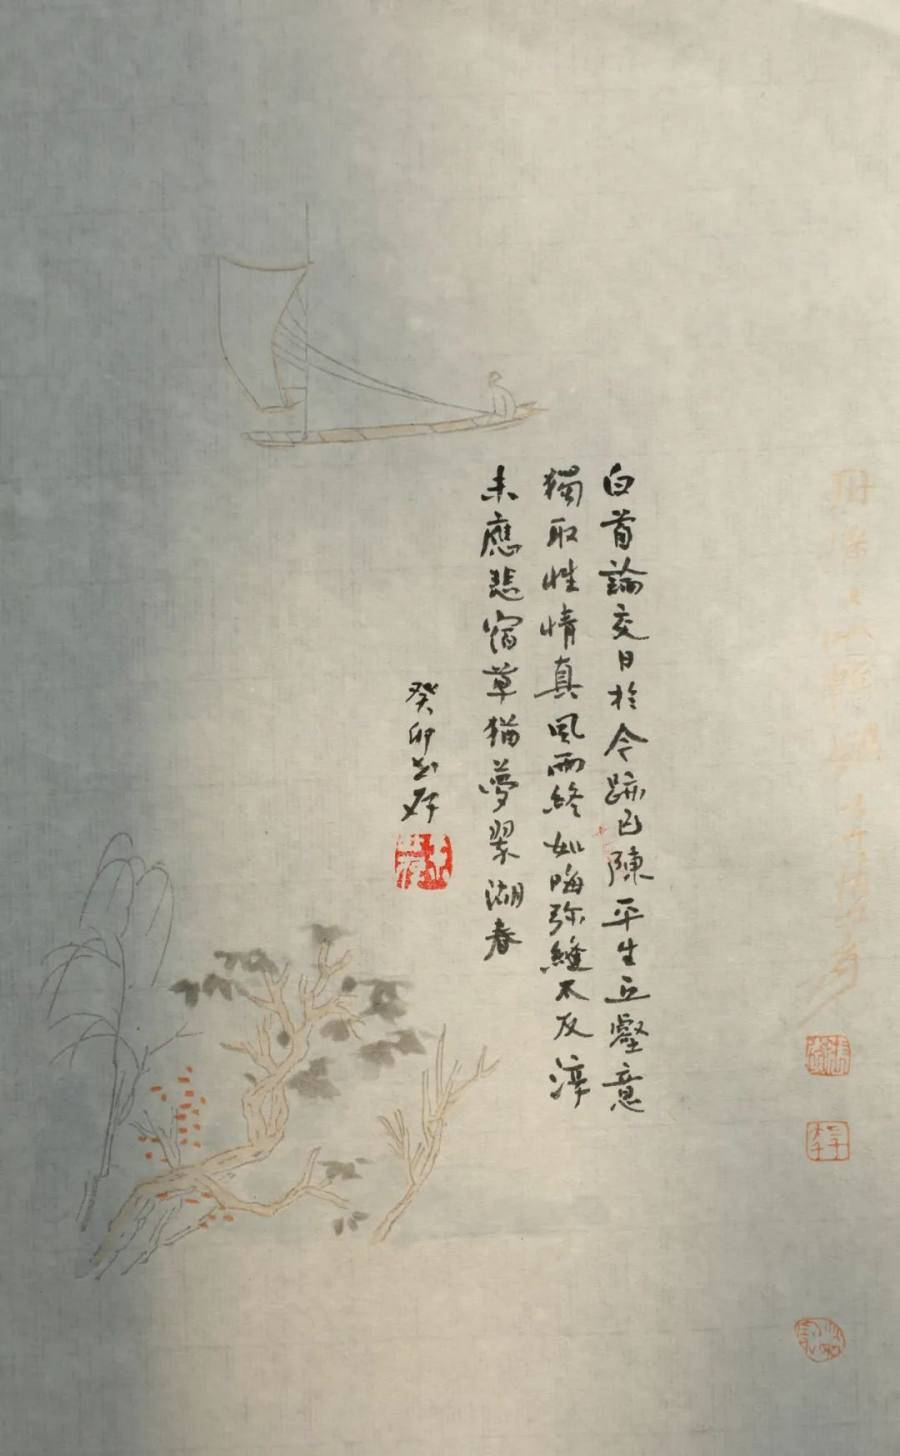 白首論交日於今跡已陳平生丘壑意
獨取性情真風雨終如晦弥縫不反淳
未應悲宿草猶夢翠湖春
癸卯